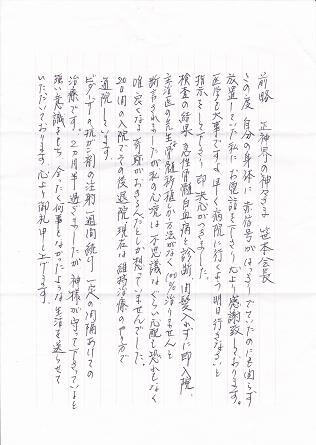 前略　正神界の神々さま　生本会長
この度 自分の身体に 赤信号がはっきりでていたのにも関らず
放置していた私に お電話を下さり心より感謝致しております。
医学も大事ですよ早く病院に行くよう明日行きなさいと
指示をして下さり 即決心がつきました。
検査の結果 急性骨髄白血病と診断 間髪入れずに即入院、
主治医の先生は骨髄移植しか方法がなく 100%治りませんと
断言されましたが私の心境は不思議なくらい心配も恐れもなく
唯、良くなる奇跡がおきるんだとしか想っていませんでした。
30日間の入院でその後退院 現在は維持治療のやり方で
通院しています。
ビダーザの抗ガン剤の注射一週間続け 一定の間隔あけての
治療です。2ヵ月半過ぎましたが 神様が守って下さっていると
強い意識をもち 全たく何事もなかったような生活を送らせて
いただいております 心より御礼申し上げます。